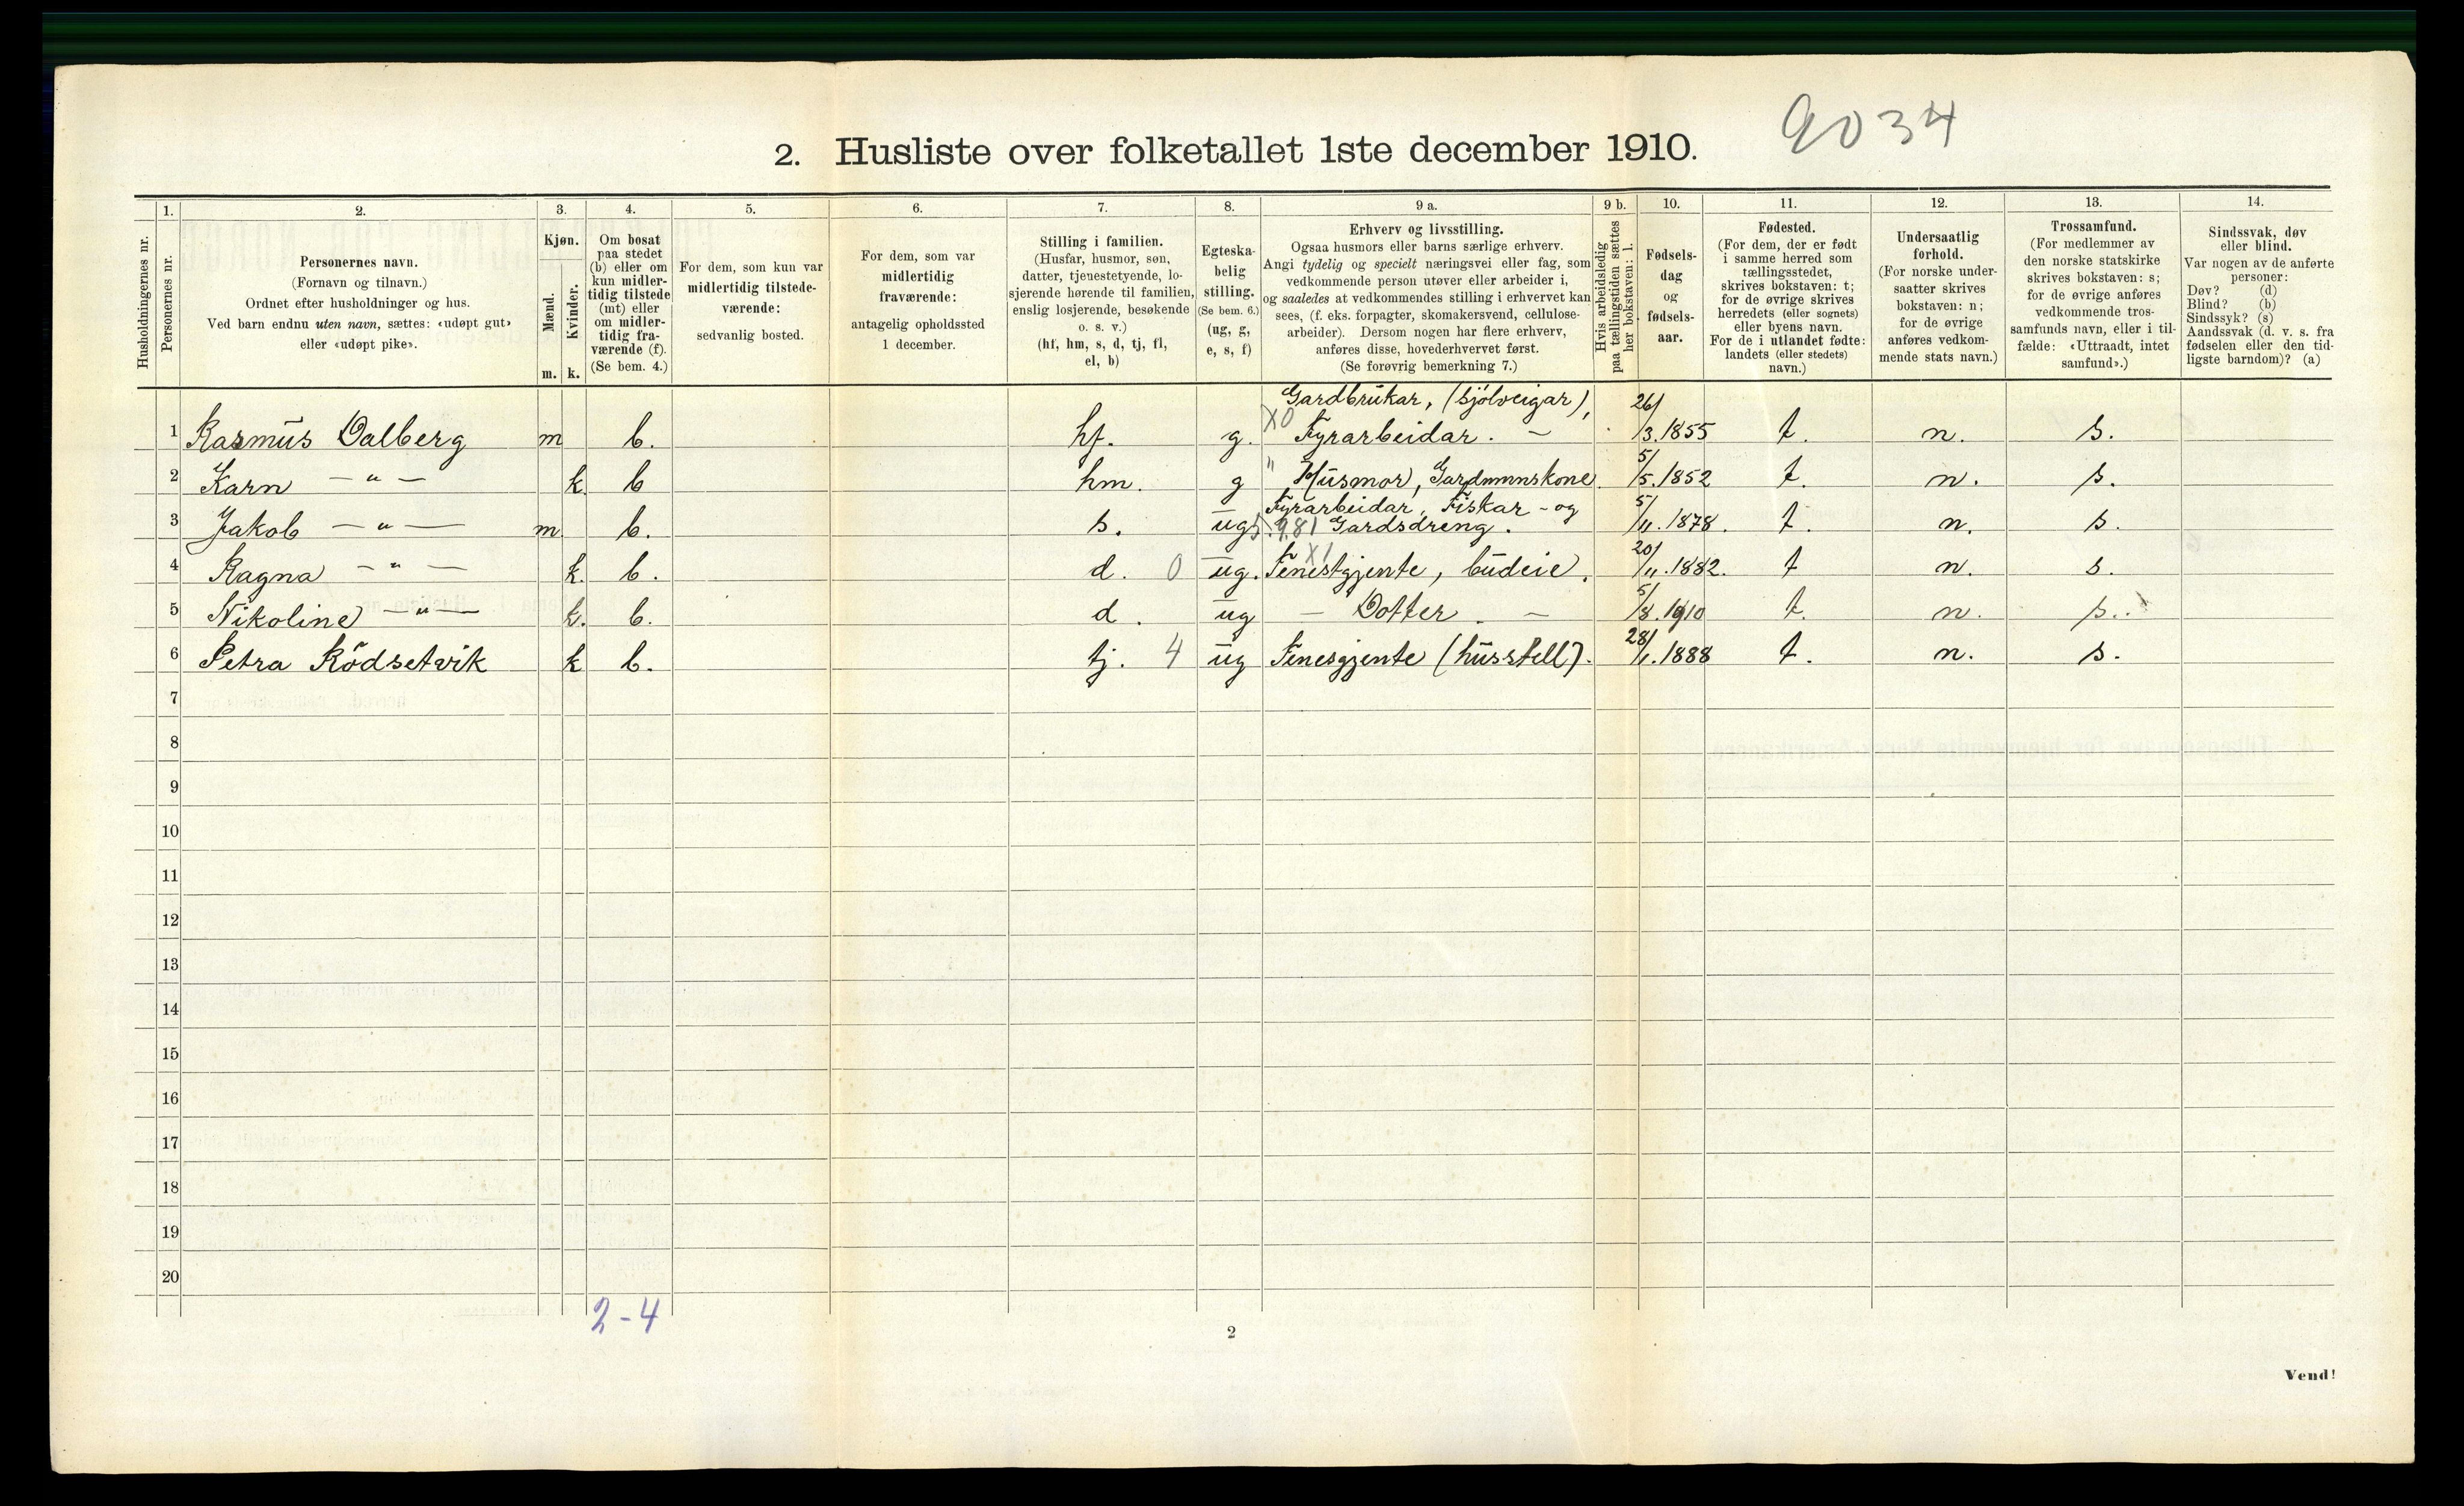 9034
2. Husliste over folketallet 1ste december 1910.
1. 2. 3. 4. 5. 6. 7. 8. 9 a. 9 b. 10. 11. 12. 13. 14.
Husholdningernes nr.
Personernes nr.
Personernes navn.
(Fornavn og tilnavn.)
Ordnet efter husholdninger og hus.
Ved barn endnu uten navn, sættes: «udøpt gut»
eller «udøpt pike».
Kjøn.
Mænd.
Kvinder.
m. k.
Om bosat
paa stedet
(b) eller om
kun midler-
tidig tilstede
(mt) eller
om midler-
tidig fra-
værende (f).
(Se bem. 4.)
For dem, som kun var
midlertidig tilstede-
værende:
sedvanlig bosted.
For dem, som var
midlertidig
fraværende:
antagelig opholdssted
1 december.
Stilling i familien.
(Husfar, husmor, søn,
datter, tjenestetyende, lo-
sjerende hørende til familien,
enslig losjerende, besøkende
o. s. v.)
(hf, hm, s, d, tj, fl,
el, b)
Egteska-
belig
stilling.
(Se bem. 6.)
(ug, g,
e, s, f)
Erhverv og livsstilling.
Ogsaa husmors eller barns særlige erhverv.
Angi tydelig og specielt næringsvei eller fag, som
vedkommende person utøver eller arbeider i,
og saaledes at vedkommendes stilling i erhvervet kan
sees, (f. eks. forpagter, skomakersvend, cellulose-
arbeider). Dersom nogen har flere erhverv,
anføres disse, hovederhvervet først.
(Se forøvrig bemerkning 7.)
Hvis arbeidsledig
paa tællingstiden sættes
her bokstaven: l.
Fødsels-
dag
og
fødsels-
aar.
Fødested.
(For dem, der er født
i samme herred som
tællingsstedet,
skrives bokstaven: t;
for de øvrige skrives
herredets (eller sognets)
eller byens navn.
For de i utlandet fødte:
landets (eller stedets)
navn.)
Undersaatlig
forhold.
(For norske under-
saatter skrives
bokstaven: n;
for de øvrige
anføres vedkom-
mende stats navn.)
Trossamfund.
(For medlemmer av
den norske statskirke
skrives bokstaven: s;
for de øvrige anføres
vedkommende tros-
samfunds navn, eller i til-
fælde: «Uttraadt, intet
samfund».)
Sindssvak, døv
eller blind.
Var nogen av de anførte
personer:
Døv? (d)
Blind? (b)
Sindssyk? (s)
Aandssvak (d. v. s. fra
fødselen eller den tid-
ligste barndom)? (a)
Gardbrukar, (sjølveigar),
1 Rasmus Dalberg m b. hf. g. X0 Fyrarbeidar. – 26/3.1855 t. n. s.
2 Karn – " – k. b hm. g " Husmor, Gardmannskone. 5/5.1852 t. n. s.
Fyrarbeidar, Fiskar - og
3 Jakob – " – m b. s. ug 981 Gardsdreng. 5/11.1878. t. n. s.
4 Ragna – " – k. b. d. 0 ug. X1 Tenestgjente, budeie. 20/11.1882. t n. s.
5 Nikoline – " – k. b. d. ug – Dotter. – 5/8.1910 t. n. s.
6 Petra Rödsetvik k b. tj. 4 ug Tenesgjente (husstell). 28/1.1888 t. n. s.
7
8
9
10
11
12
13
14
15
16
17
18
19
20
2-4
2
Vend!